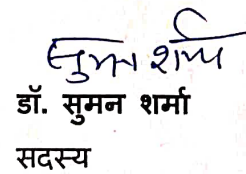 सुमन शर्मा
डॉ. सुमन शर्मा
सदस्य